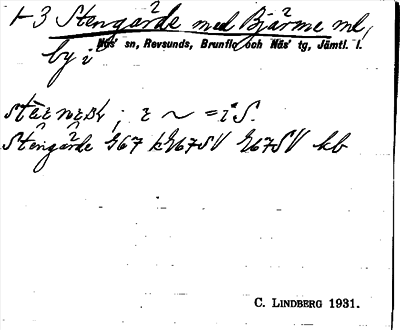 1-3 Stengärde med Bjärme ml,
by i Näs' sn, Revsunds, Brunflo och Näs' tg, Jämtl. l.
; i ~ = i S.
Stengärde G67 kG67SV G67SV kb
C. LINDBERG 1931.